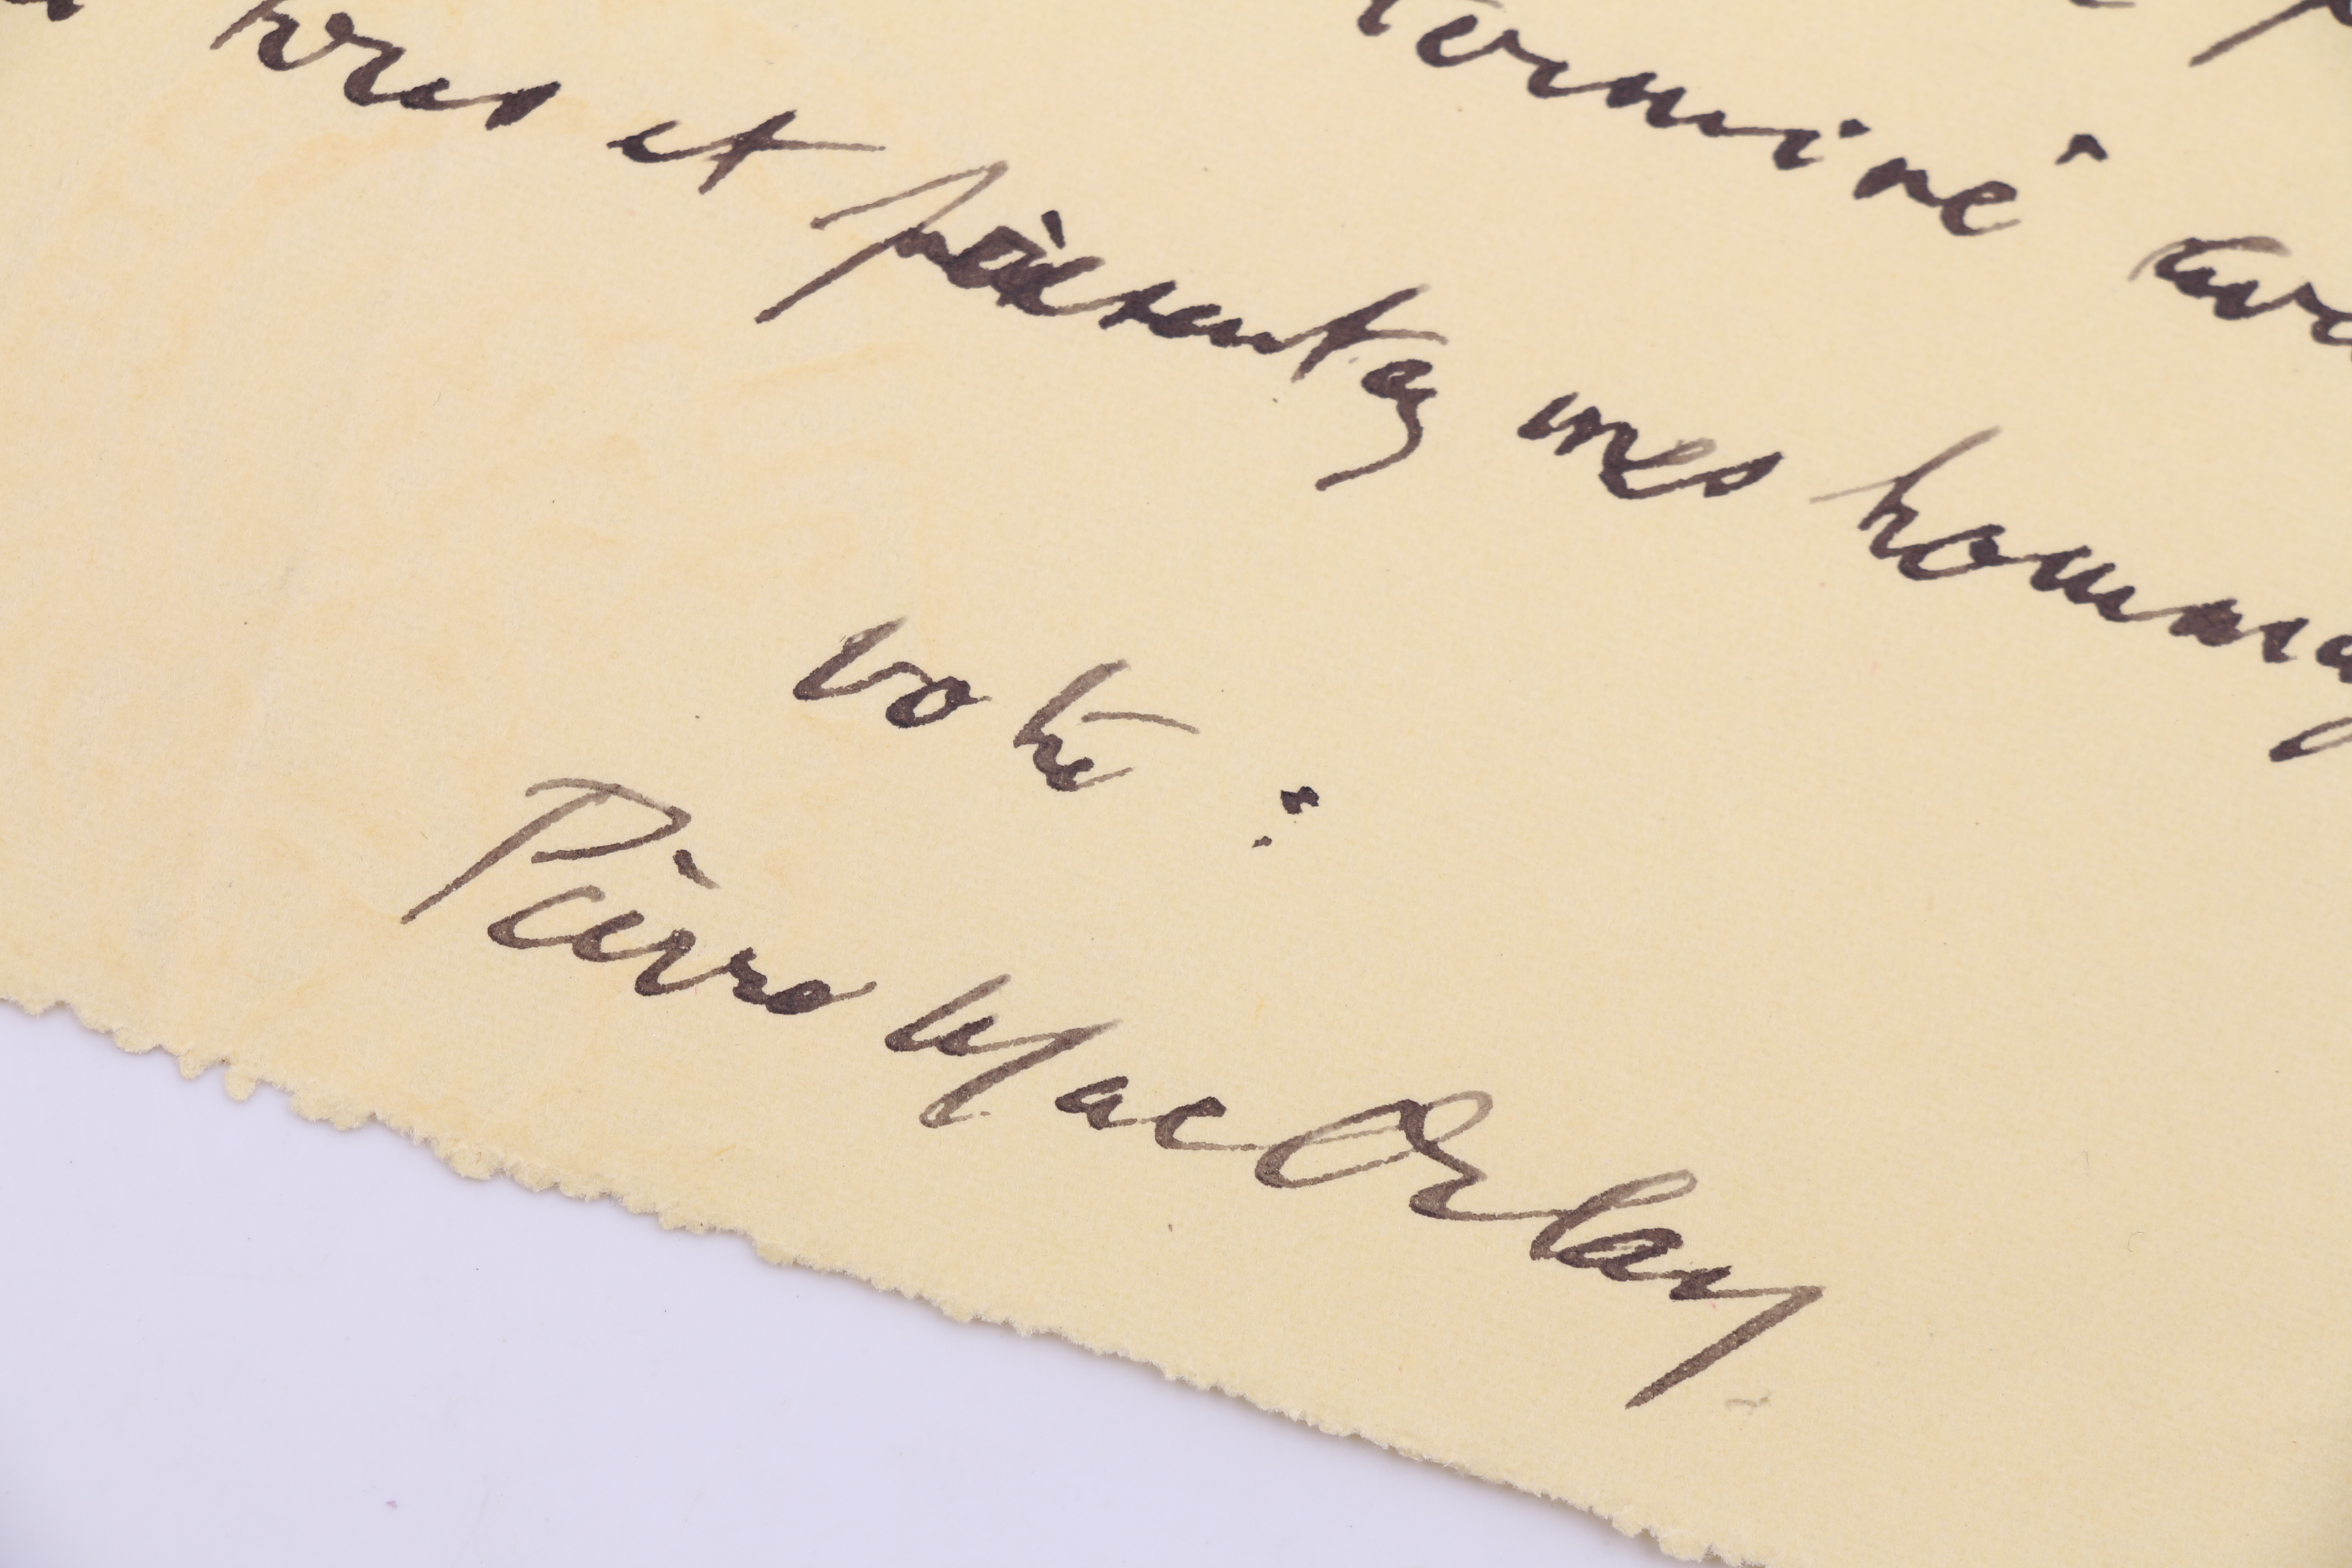 terminé
et présentez mes hommag
votre :
Pierre Mac Orlan